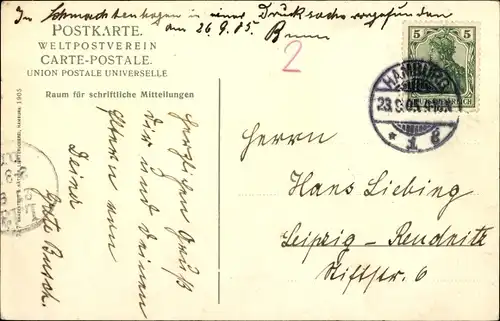 In Schmachtenhagen in einer Drucksache vorgefunden
am 26.9.05. B
POSTKARTE.
WELTPOSTVEREIN
CARTE-POSTALE.
UNION POSTALE UNIVERSELLE
2
5 5
HAMBURG
23.9.05.9-10
* 1 *
Raum für schriftliche Mitteilungen
Herzlichen Gruß
Dir und Deinen
Eltern von
Deiner
Busch.
Herrn
Hans Liebing
Leipzig-Reudnitz
Stiftstr. 6
HAMBURG 1905